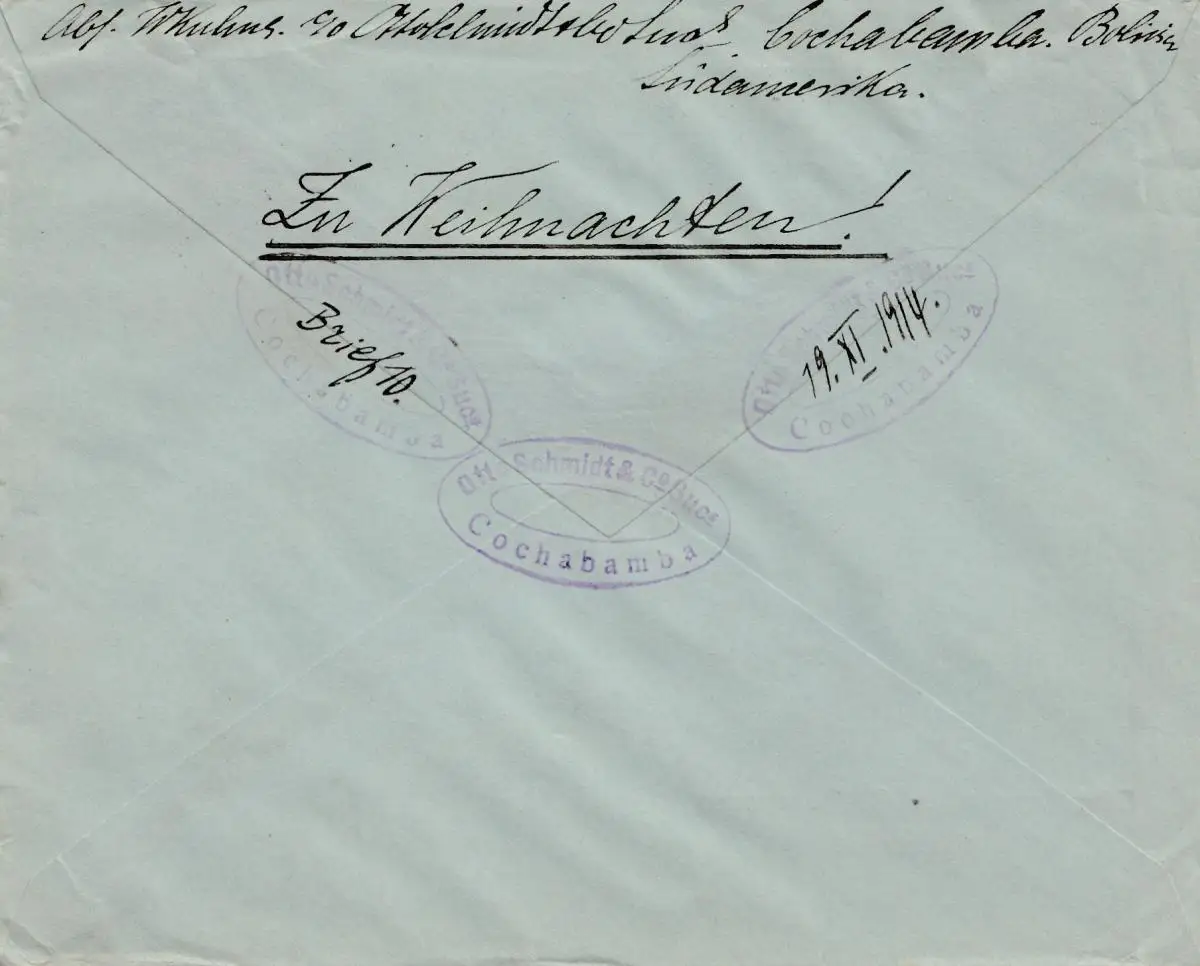 Abs. W Kuhns. c/o Otto Schmidt & Co Sucs. Cochabamba. Bolivia
Südamerika.
Zu Weihnachten!
Otto Schmidt & Co Sucs
Cochabamba
Brief 10.
Otto Schmidt & Co Sucs
Cochabamba
19. XI. 1914.
Otto Schmidt & Co Sucs
Cochabamba